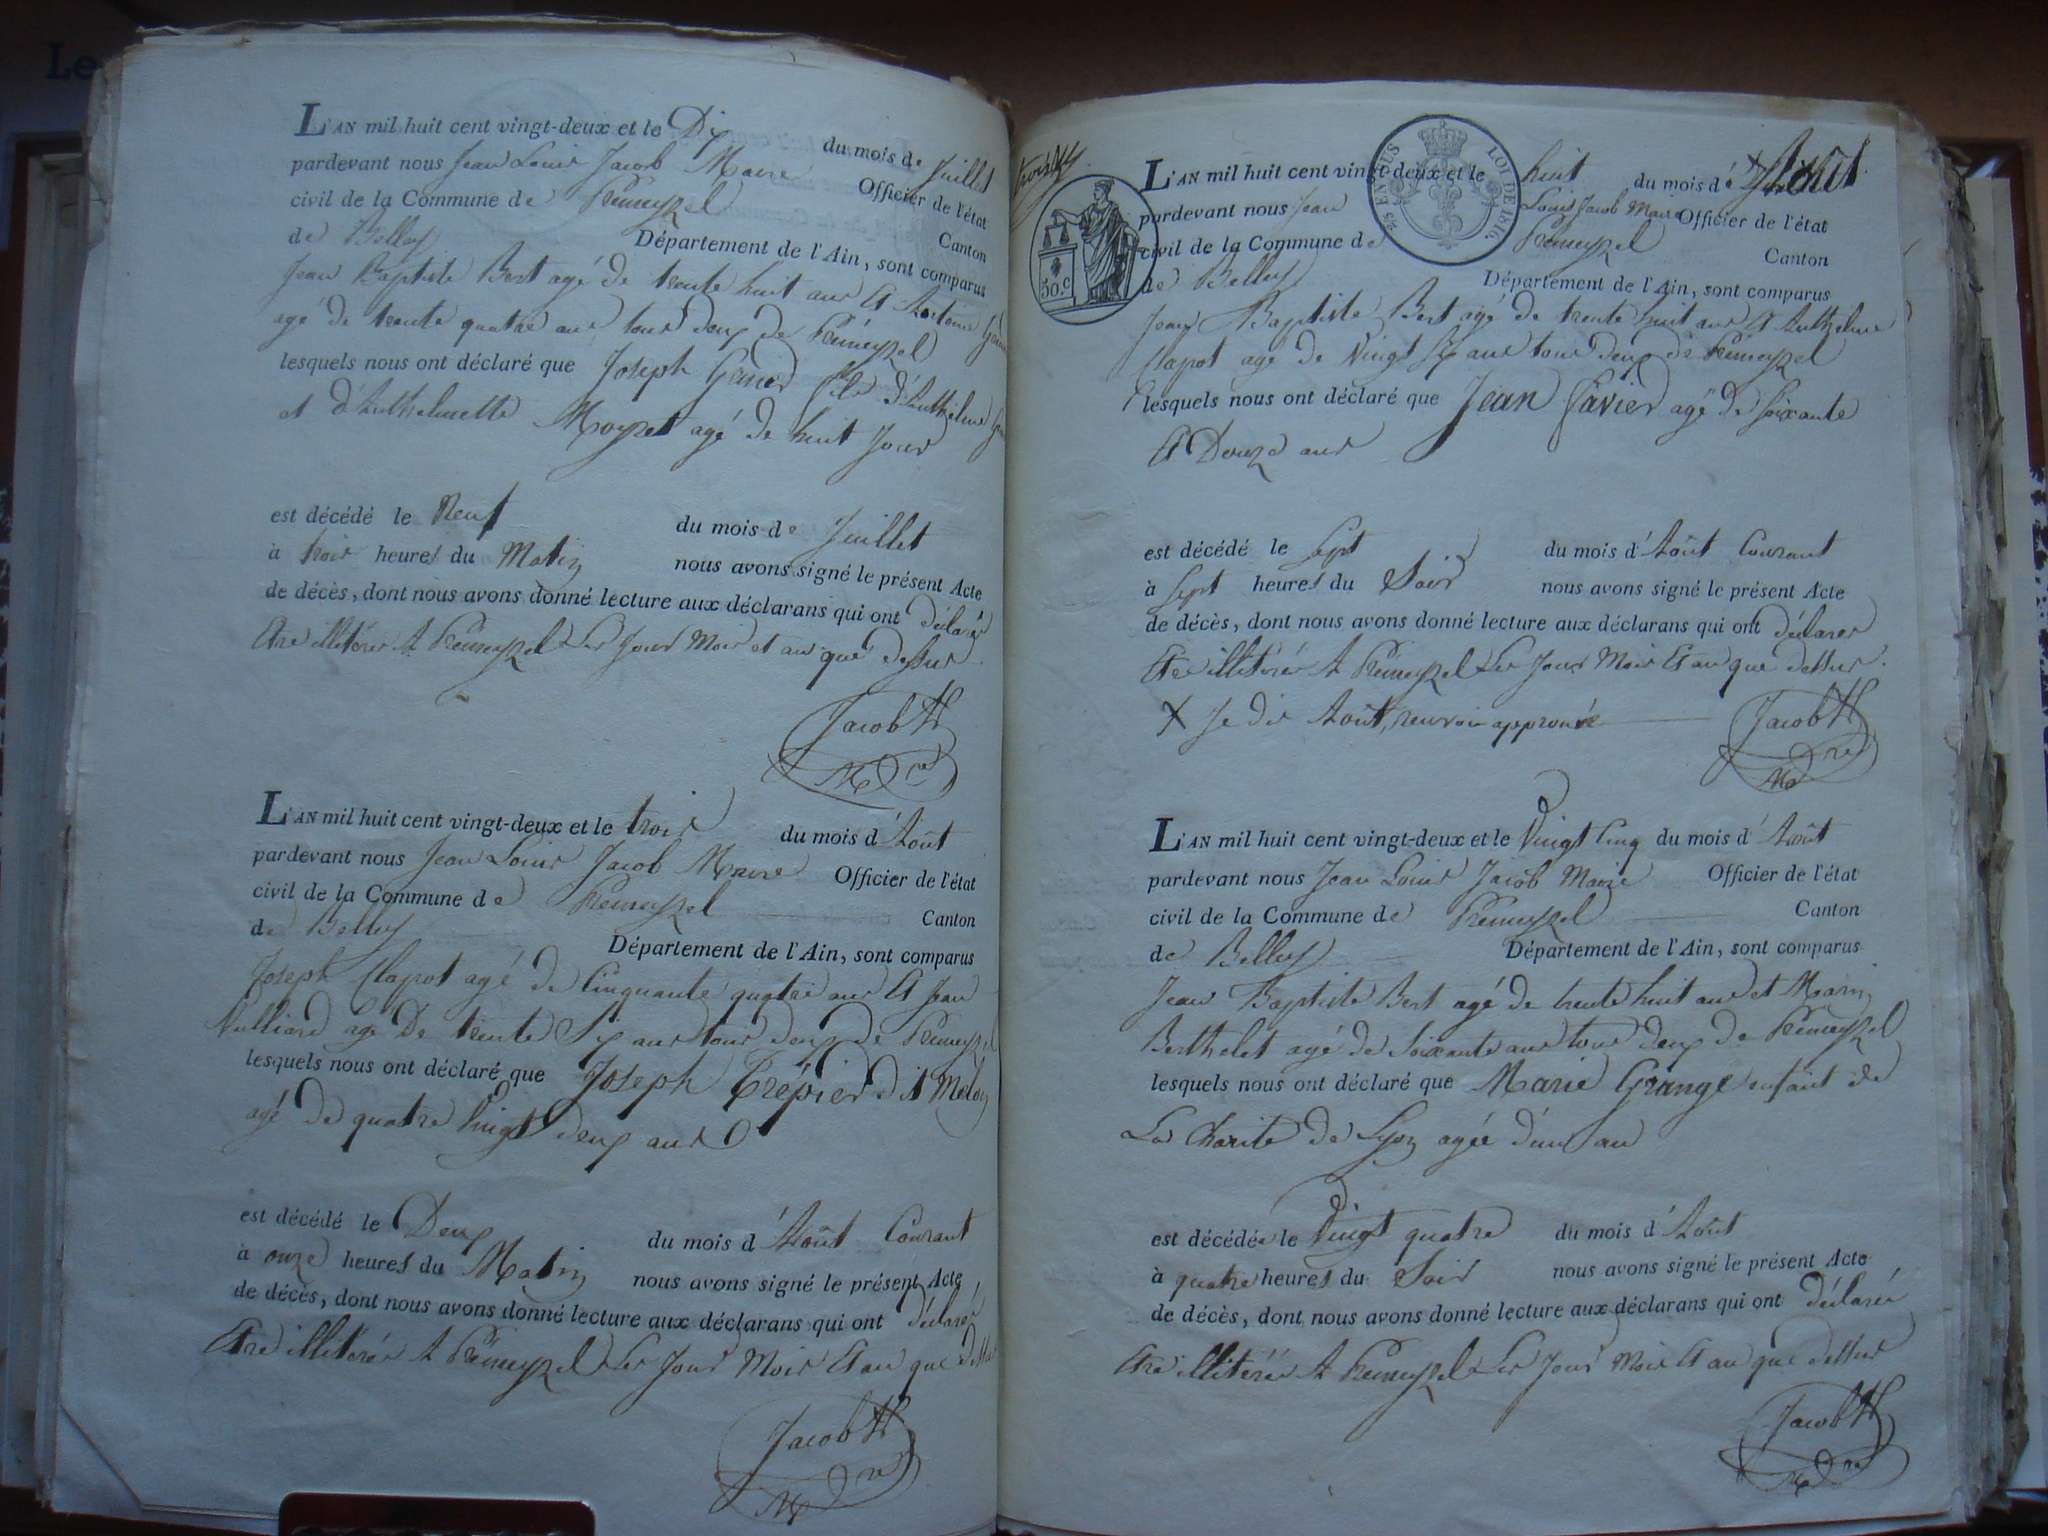 Le
L'AN mil huit cent vingt-deux et le Dix du mois de Juillet
pardevant nous Jean Louis Jacob Maire Officier de l'état
civil de la Commune de Prémeyzel Canton
de Belley Département de l'Ain, sont comparus
Jean Baptiste Bert agé de trente huit ans Et Antoine
agé de trente quatre ans tous deux de Prémeyzel
lesquels nous ont déclaré que Joseph fils d'Anthelme
et d'Anthelmette Moyret agé de huit Jours
est décédé le Neuf du mois de Juillet
à trois heures du Matin nous avons signé le présent Acte
de décès, dont nous avons donné lecture aux déclarans qui ont déclaré
Etre illitérés A Prémeyzel Les Jour Mois et an que dessus
Jacob
L'AN mil huit cent vingt-deux et le trois du mois d'Août
pardevant nous Jean Louis Jacob Maire Officier de l'état
civil de la Commune de Prémeyzel Canton
de Belley Département de l'Ain, sont comparus
Joseph Clapot agé de Cinquante quatre ans Et Jean
Vulliard agé De trente Six ans tous deux de Prémeyzel
lesquels nous ont déclaré que Joseph Trépier dit
agé De quatre Vingt deux ans
est décédé le Deux du mois d'Août Courant
à onze heures du Matin nous avons signé le présent Acte
de décès, dont nous avons donné lecture aux déclarans qui ont déclaré
Etre illitérés A Prémeyzel Les Jour Mois Et an que dessus
Jacob
LOI DE 1816.
50.C
L'AN mil huit cent vingt-deux et le huit du mois d' X Août
pardevant nous Jean Louis Jacob Maire Officier de l'état
civil de la Commune de Prémeyzel Canton
de Belley Département de l'Ain, sont comparus
Jean Baptiste Bert agé de trente huit ans Et Anthelme
Clapot agé de Vingt Six ans tous deux de Prémeyzel
lesquels nous ont déclaré que Jean Favier agé de Soixante
Et Douze ans
est décédé le Sept du mois d'Août Courant
à Sept heures du Soir nous avons signé le présent Acte
de décès, dont nous avons donné lecture aux déclarans qui ont déclarer
Etre illitérés A Prémeyzel Les Jour Mois Et an que dessus.
X Je dis Août, renvoi approuvé
Jacob
L'AN mil huit cent vingt-deux et le Vingt Cinq du mois d'Août
pardevant nous Jean Louis Jacob Maire Officier de l'état
civil de la Commune de Prémeyzel Canton
de Belley Département de l'Ain, sont comparus
Jean Baptiste Bert agé de trente huit ans et Marin
Berthelet agé de Soixante ans tous deux de Prémeyzel
lesquels nous ont déclaré que Marie Grange enfant de
La Charité de Lyon agée d'un an
est décédée le Vingt quatre du mois d'Août
à quatre heures du Soir nous avons signé le présent Acte
de décès, dont nous avons donné lecture aux déclarans qui ont déclaré
Etre illitérés A Prémeyzel Les Jour Mois Et an que dessus
Jacob